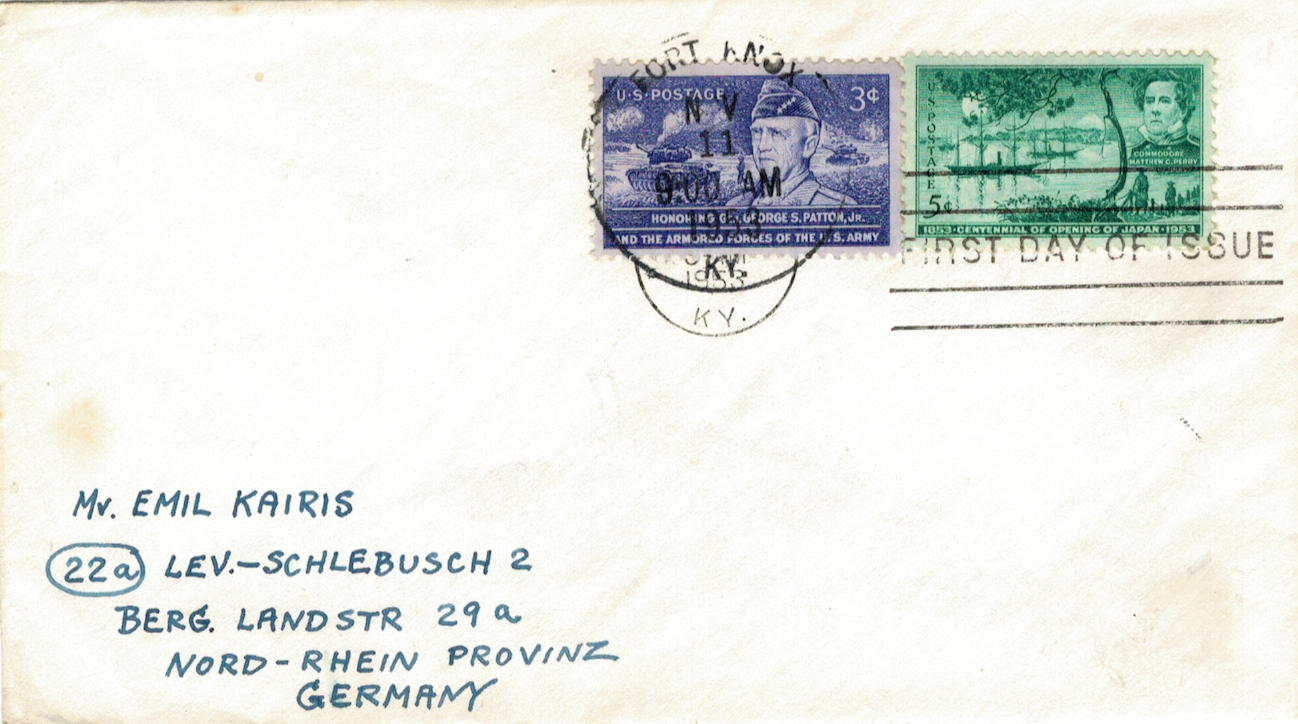 FORT KNOX
NOV
11
9:00 AM
1953
KY.
U·S·POSTAGE 3¢
HONORING GEN. GEORGE S. PATTON, JR.
AND THE ARMORED FORCES OF THE U.S. ARMY
1953
KY.
U·S·POSTAGE
COMMODORE
MATTHEW C. PERRY
5¢
1853·CENTENNIAL OF OPENING OF JAPAN·1953
FIRST DAY OF ISSUE
Mr. EMIL KAIRIS
22a LEV.-SCHLEBUSCH 2
BERG. LANDSTR 29a
NORD-RHEIN PROVINZ
GERMANY